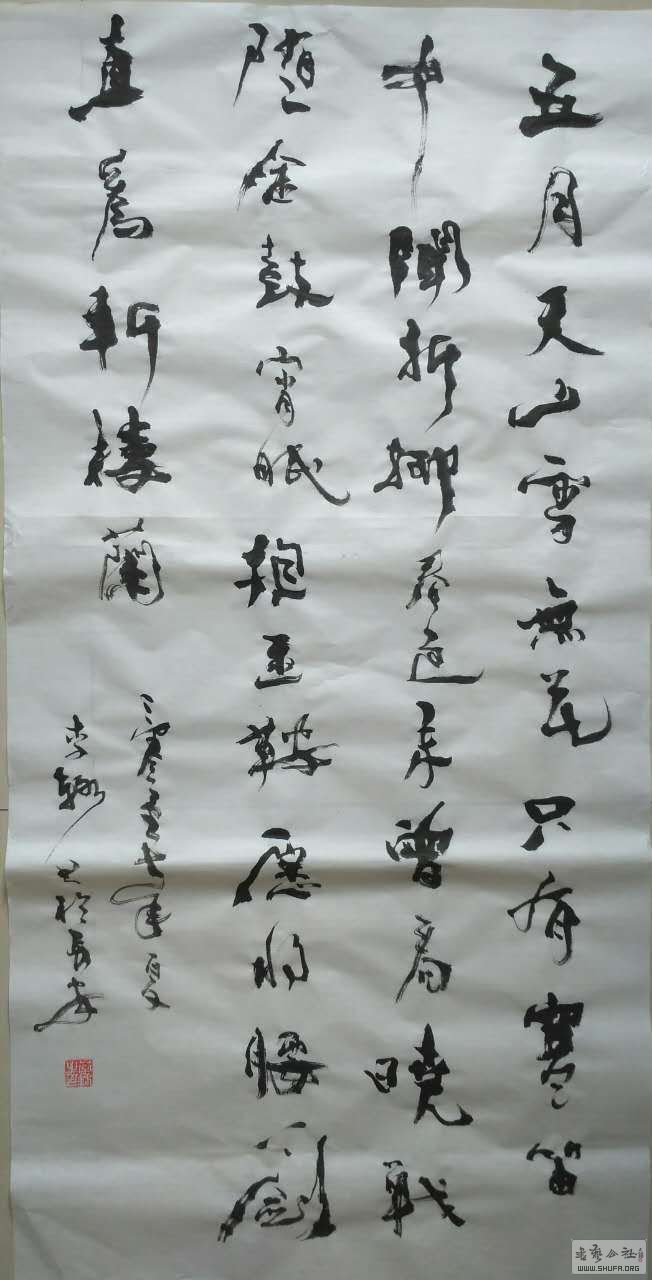 五月天山雪無花只有寒笛
中聞折柳春色未曾看曉戰
隨金鼓宵眠抱玉鞍應將腰下劍
直為斬樓蘭
二零壹七年夏
李 書於長安
书艺公社
WWW.SHUFA.ORG